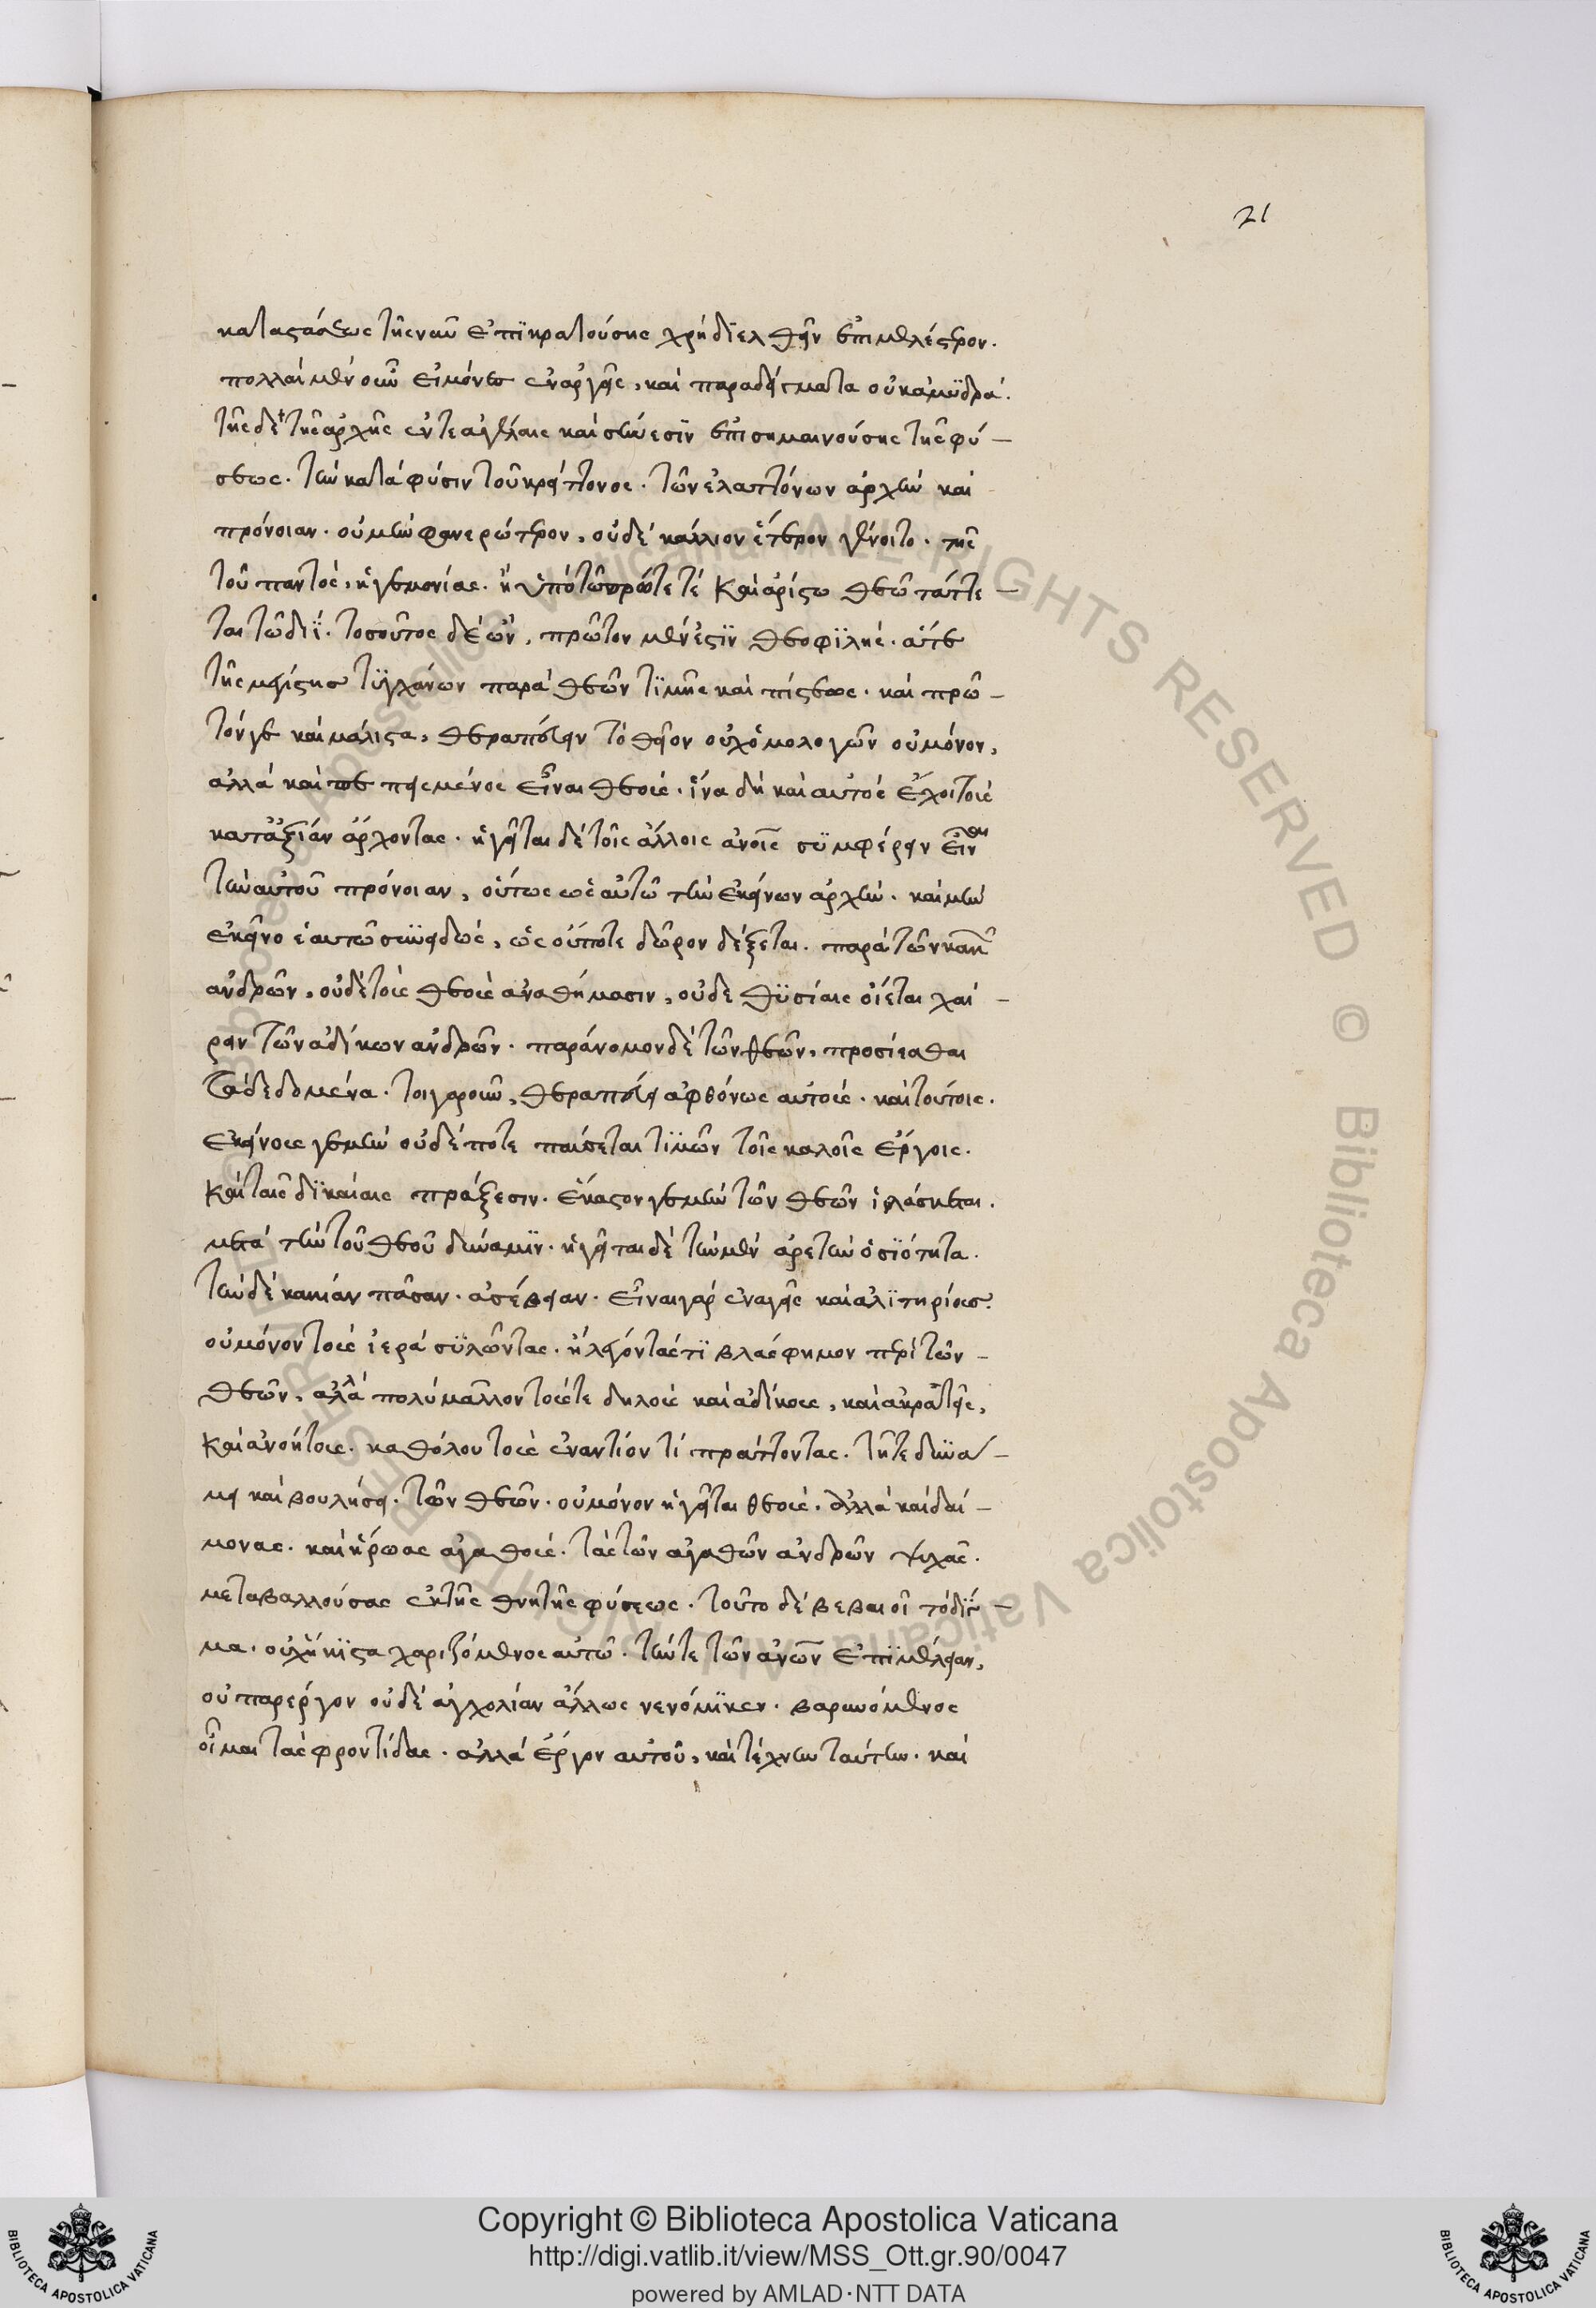 21
καταστάσεως τῆς νῦν ἐπϊκρατούσης χρὴ δϊελθεῖν ἐπιμελέστερον.
πολλαὶ μὲν οὖν εἰκόνες ἐναργεῖς, καὶ παραδείγματα οὐκ ἀμϋδρά.
τῆς δὲ τῆς ἀρχῆς ἔν τε ἀγέλαις καὶ σμήνεσϊν ἐπισημαινούσης τῆς φύ-
σεως. τὴν κατὰ φύσιν τοῦ κρείττονος. τῶν ἐλαττόνων ἀρχὴν καὶ
πρόνοιαν. οὐ μὴν φανερώτερον, οὐδὲ κάλλιον ἕτερον γένοιτο. τῆς
τοῦ παντὸς, ἡγεμονίας. ἣ ὑπὸ τῷ πρώτῳ τε καὶ ἀρίστῳ θεῷ τάττε-
ται τῷ διΐ. τοσοῦτος δὲ ὢν, πρῶτον μέν ἐστϊν θεοφϊλὴς. ἅτε
τῆς μεγίστης τϋγχάνων παρὰ θεῶν τϊμῆς καὶ πίστεως. καὶ πρῶ-
τόν γε καὶ μάλιστα, θεραπεύειν τὸ θεῖον οὐχ ὁμολογῶν οὐ μόνον,
ἀλλὰ καὶ πεπεισμένος εἶναι θεοὺς. ἵνα δὴ καὶ αὐτὸς ἔχοι τοὺς
κατ' ἀξίαν ἄρχοντας. ἡγεῖται δὲ τοῖς ἄλλοις ἀνοις σϋμφέρειν εἶναι
τὴν αὑτοῦ πρόνοιαν, οὕτως ὡς αὑτῷ τὴν ἐκείνων ἀρχὴν. καὶ μὴν
ἐκεῖνο ἑαυτῷ συνειδὼς, ὡς οὔποτε δῶρον δέξεται. παρὰ τῶν κακῶν
ἀνδρῶν, οὐδὲ τοὺς θεοὺς ἀναθήμασιν, οὐδὲ θϋσίαις οἴεται χαί-
ρειν τῶν ἀδίκων ἀνδρῶν. παράνομον δὲ τῶν θεῶν, προσίεσθαι
τὰ δεδομένα. τοιγαροῦν, θεραπεύει ἀφθόνως αὐτοὺς. καὶ τούτοις.
ἐκείνοις γε μὴν οὐδέποτε παύσεται τϊμῶν τοῖς καλοῖς ἔργοις.
καὶ ταῖς δϊκαίαις πράξεσιν. ἕκαστόν γε μὴν τῶν θεῶν ἱλάσκεται.
κατὰ τὴν τοῦ θεοῦ δύναμϊν. ἡγεῖται δὲ τὴν μὲν ἀρετὴν ὁσϊότητα.
τὴν δὲ κακίαν πᾶσαν. ἀσέβειαν. εἶναι γὰρ ἐναγεῖς καὶ ἀλϊτηρίους.
οὐ μόνον τοὺς ἱερὰ σϋλῶντας. ἢ λέγοντάς τϊ βλάσφημον περὶ τῶν-
θεῶν, ἀλλὰ πολὺ μᾶλλον τούς τε δηλοὺς καὶ ἀδίκους, καὶ ἀκρατεῖς,
καὶ ἀνοήτους. καθόλου τοὺς ἐναντίον τὶ πράττοντας. τῇ τε δϋνά-
μει καὶ βουλήσει. τῶν θεῶν. οὐ μόνον ἡγεῖται θεοὺς. ἀλλὰ καὶ δαί-
μονας. καὶ ἥρωας ἀγαθοὺς. τὰς τῶν ἀγαθῶν ἀνδρῶν ψυχὰς.
μεταβαλλούσας ἐκ τῆς θνητῆς φύσεως. τοῦτο δὲ βεβαιοῖ τὸ δϊῆγ-
μα. οὐχ ἥκϊστα χαριζόμενος αὑτῷ. τήν τε τῶν ἀνων ἐπϊμέλειαν,
οὐ παρεργον οὐδὲ ἀσχολίαν ἄλλως νενόμϊκεν. βαρυνόμενος
οἶμαι τὰς φροντίδας. ἀλλὰ ἔργον αὑτοῦ, καὶ τέχνην ταύτην. καὶ
Copyright © Biblioteca Apostolica Vaticana
http://digi.vatlib.it/view/MSS_Ott.gr.90/0047
powered by AMLAD·NTT DATA